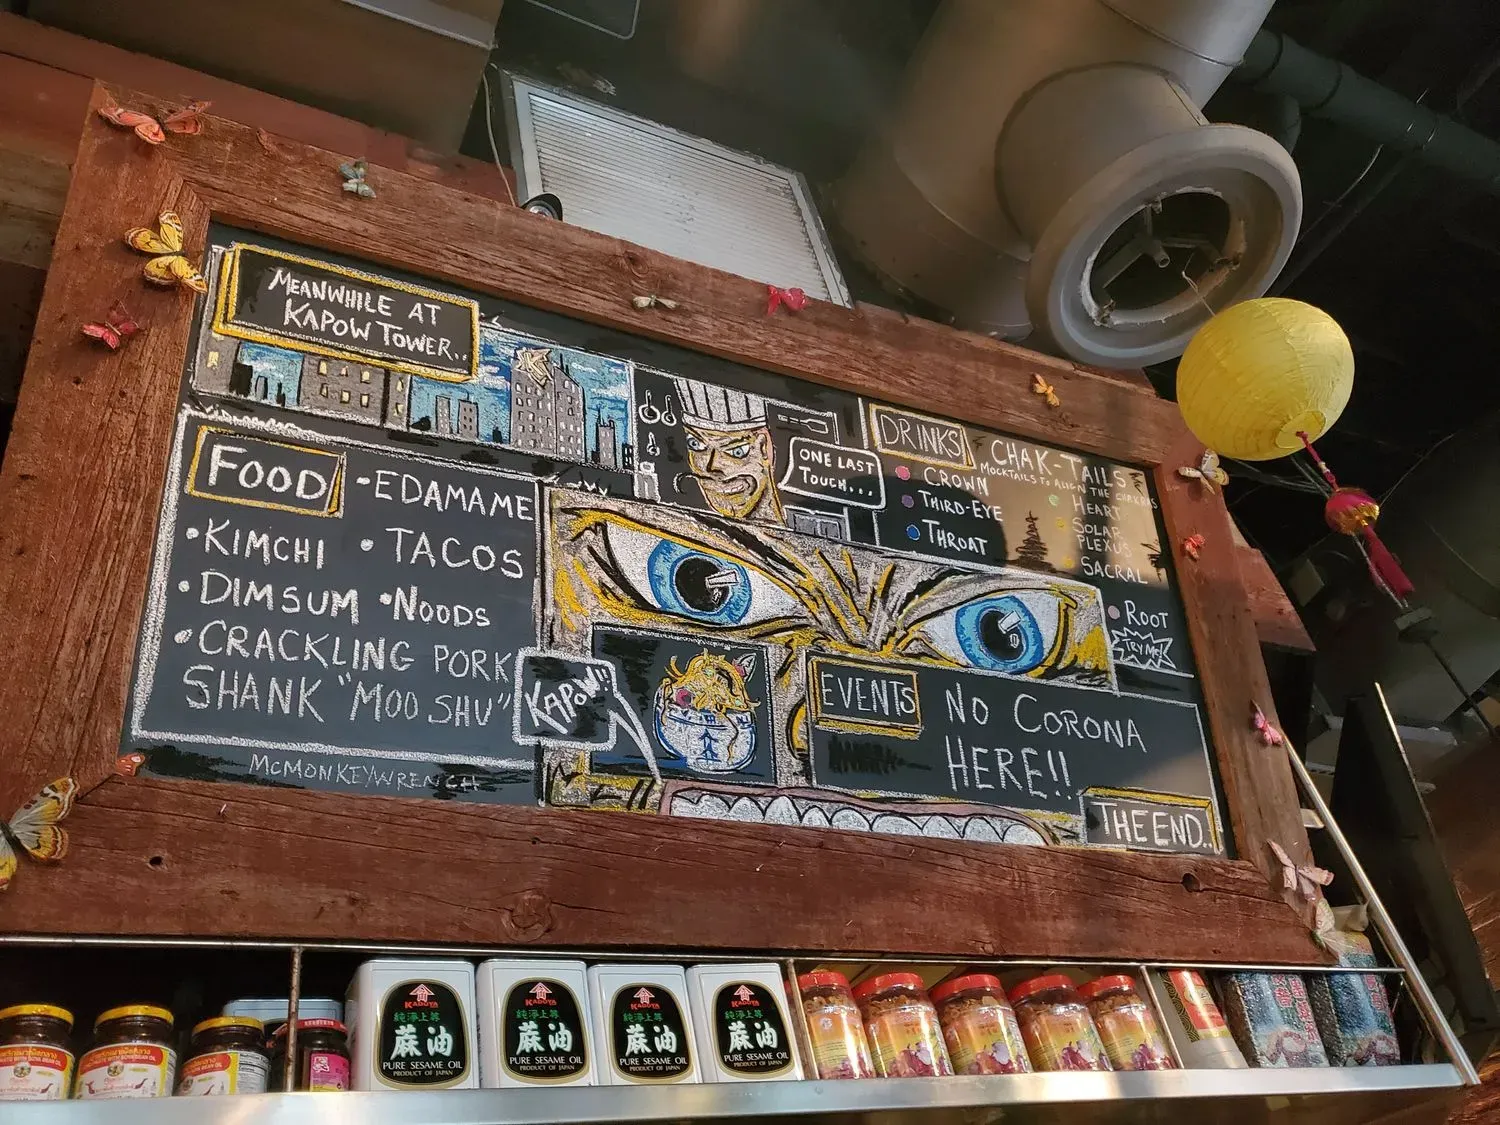 MEANWHILE AT
KAPOW TOWER..
K
ONE LAST
TOUCH...
FOOD
-EDAMAME
•KIMCHI •TACOS
•DIMSUM •NOODS
•CRACKLING PORK
SHANK "MOO SHU"
MCMONKEYWRENCH
KAPOW!!
DRINKS
CHAK-TAILS
MOCKTAILS TO ALIGN THE CHAKRAS
CROWN
THIRD-EYE
THROAT
HEART
SOLAR
PLEXUS
SACRAL
ROOT
TRY ME!
EVENTS
NO CORONA
HERE!!
THE END..
KADOYA
純淨上等
蔴油
PURE SESAME OIL
PRODUCT OF JAPAN
KADOYA
純淨上等
蔴油
PURE SESAME OIL
PRODUCT OF JAPAN
KADOYA
純淨上等
蔴油
PURE SESAME OIL
PRODUCT OF JAPAN
KADOYA
純淨上等
蔴油
PURE SESAME OIL
PRODUCT OF JAPAN